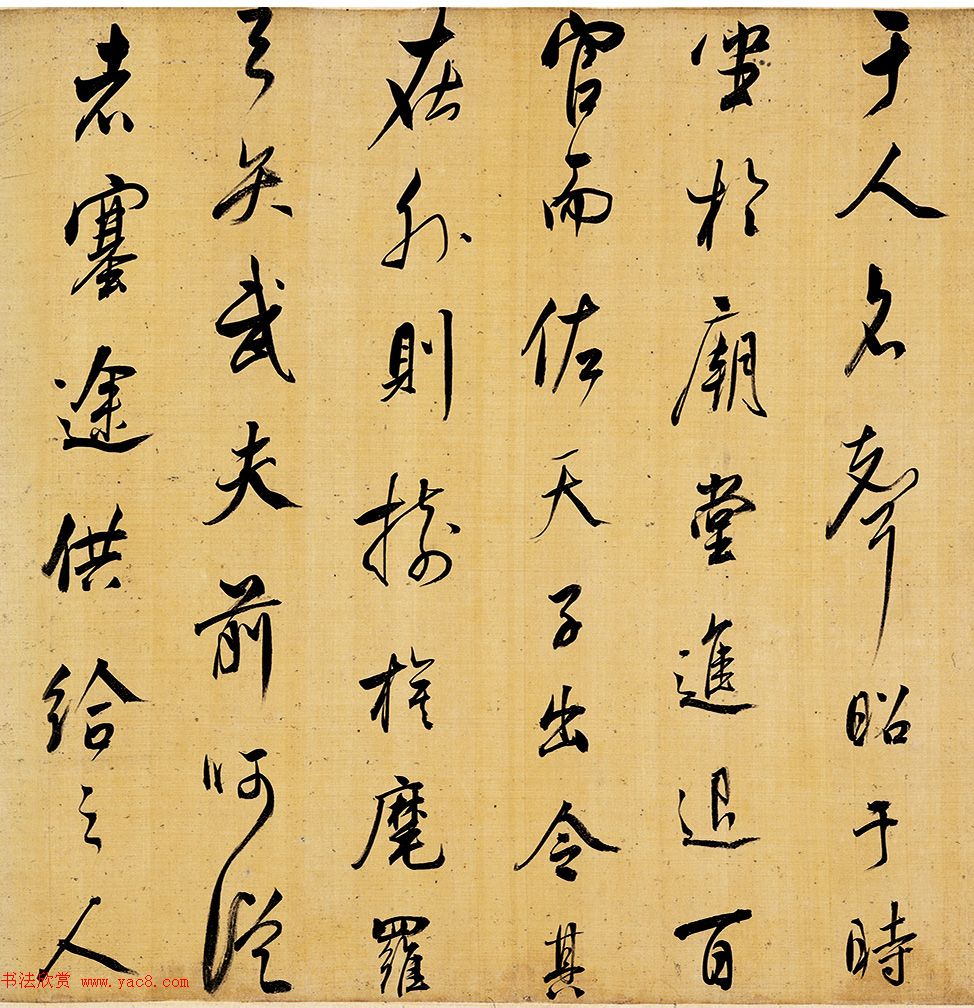 于人名聲昭于時
坐於廟堂進退百
官而佐天子出令其
在外則樹旗麾羅
弓矢武夫前呵從
者塞途供給之人
书法欣赏 www.yac8.com